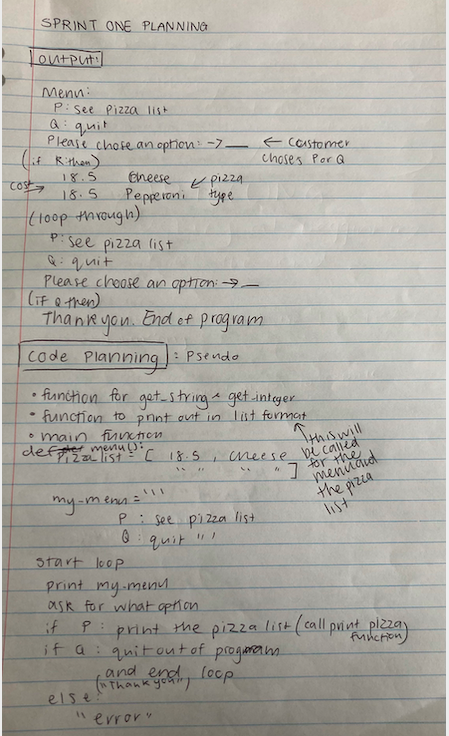 SPRINT ONE PLANNING
output:
Menu:
P: see Pizza list
Q: quit
Please chose an option: -> __ ← Customer
choses P or Q
(if P: then)
cost → 18.5 Cheese ↙ pizza
18.5 Pepperoni type
(loop through)
P: see pizza list
Q: quit
Please choose an option: -> _
(if Q then)
Thank you. End of program
Code Planning : Pseudo
• function for get_string & get_integer
• function to print out in list format
• main function
↑ this will
be called
for the
menu and
the pizza
list
def menu():
Pizza list = [ 18.5 , cheese
" " " " ]
my-menu = '''
P : see pizza list
Q : quit '''
start loop
print my-menu
ask for what option
if P : print the pizza list (call print pizza
function)
if Q : quit out of program
and end loop
("Thankyou")
else:
"error"